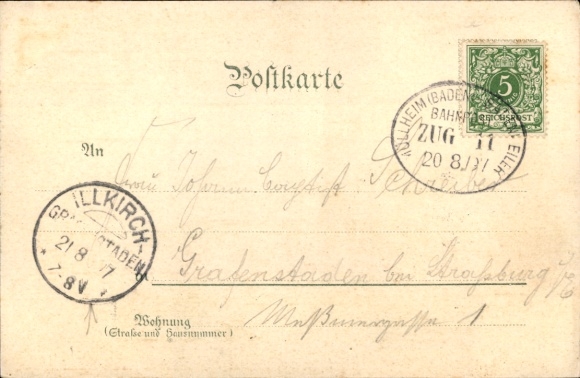 Postkarte
5
REICHSPOST
MÜLLHEIM (BADEN)
BAHNPOST
ZUG 11
20 8 97
An
Frau Johann Baptist Schreiber
ILLKIRCH-
GRAFENSTADEN
21 8 97
7-8V
Grafenstaden bei Straßburg i/E
Wohnung
(Straße und Hausnummer)
1